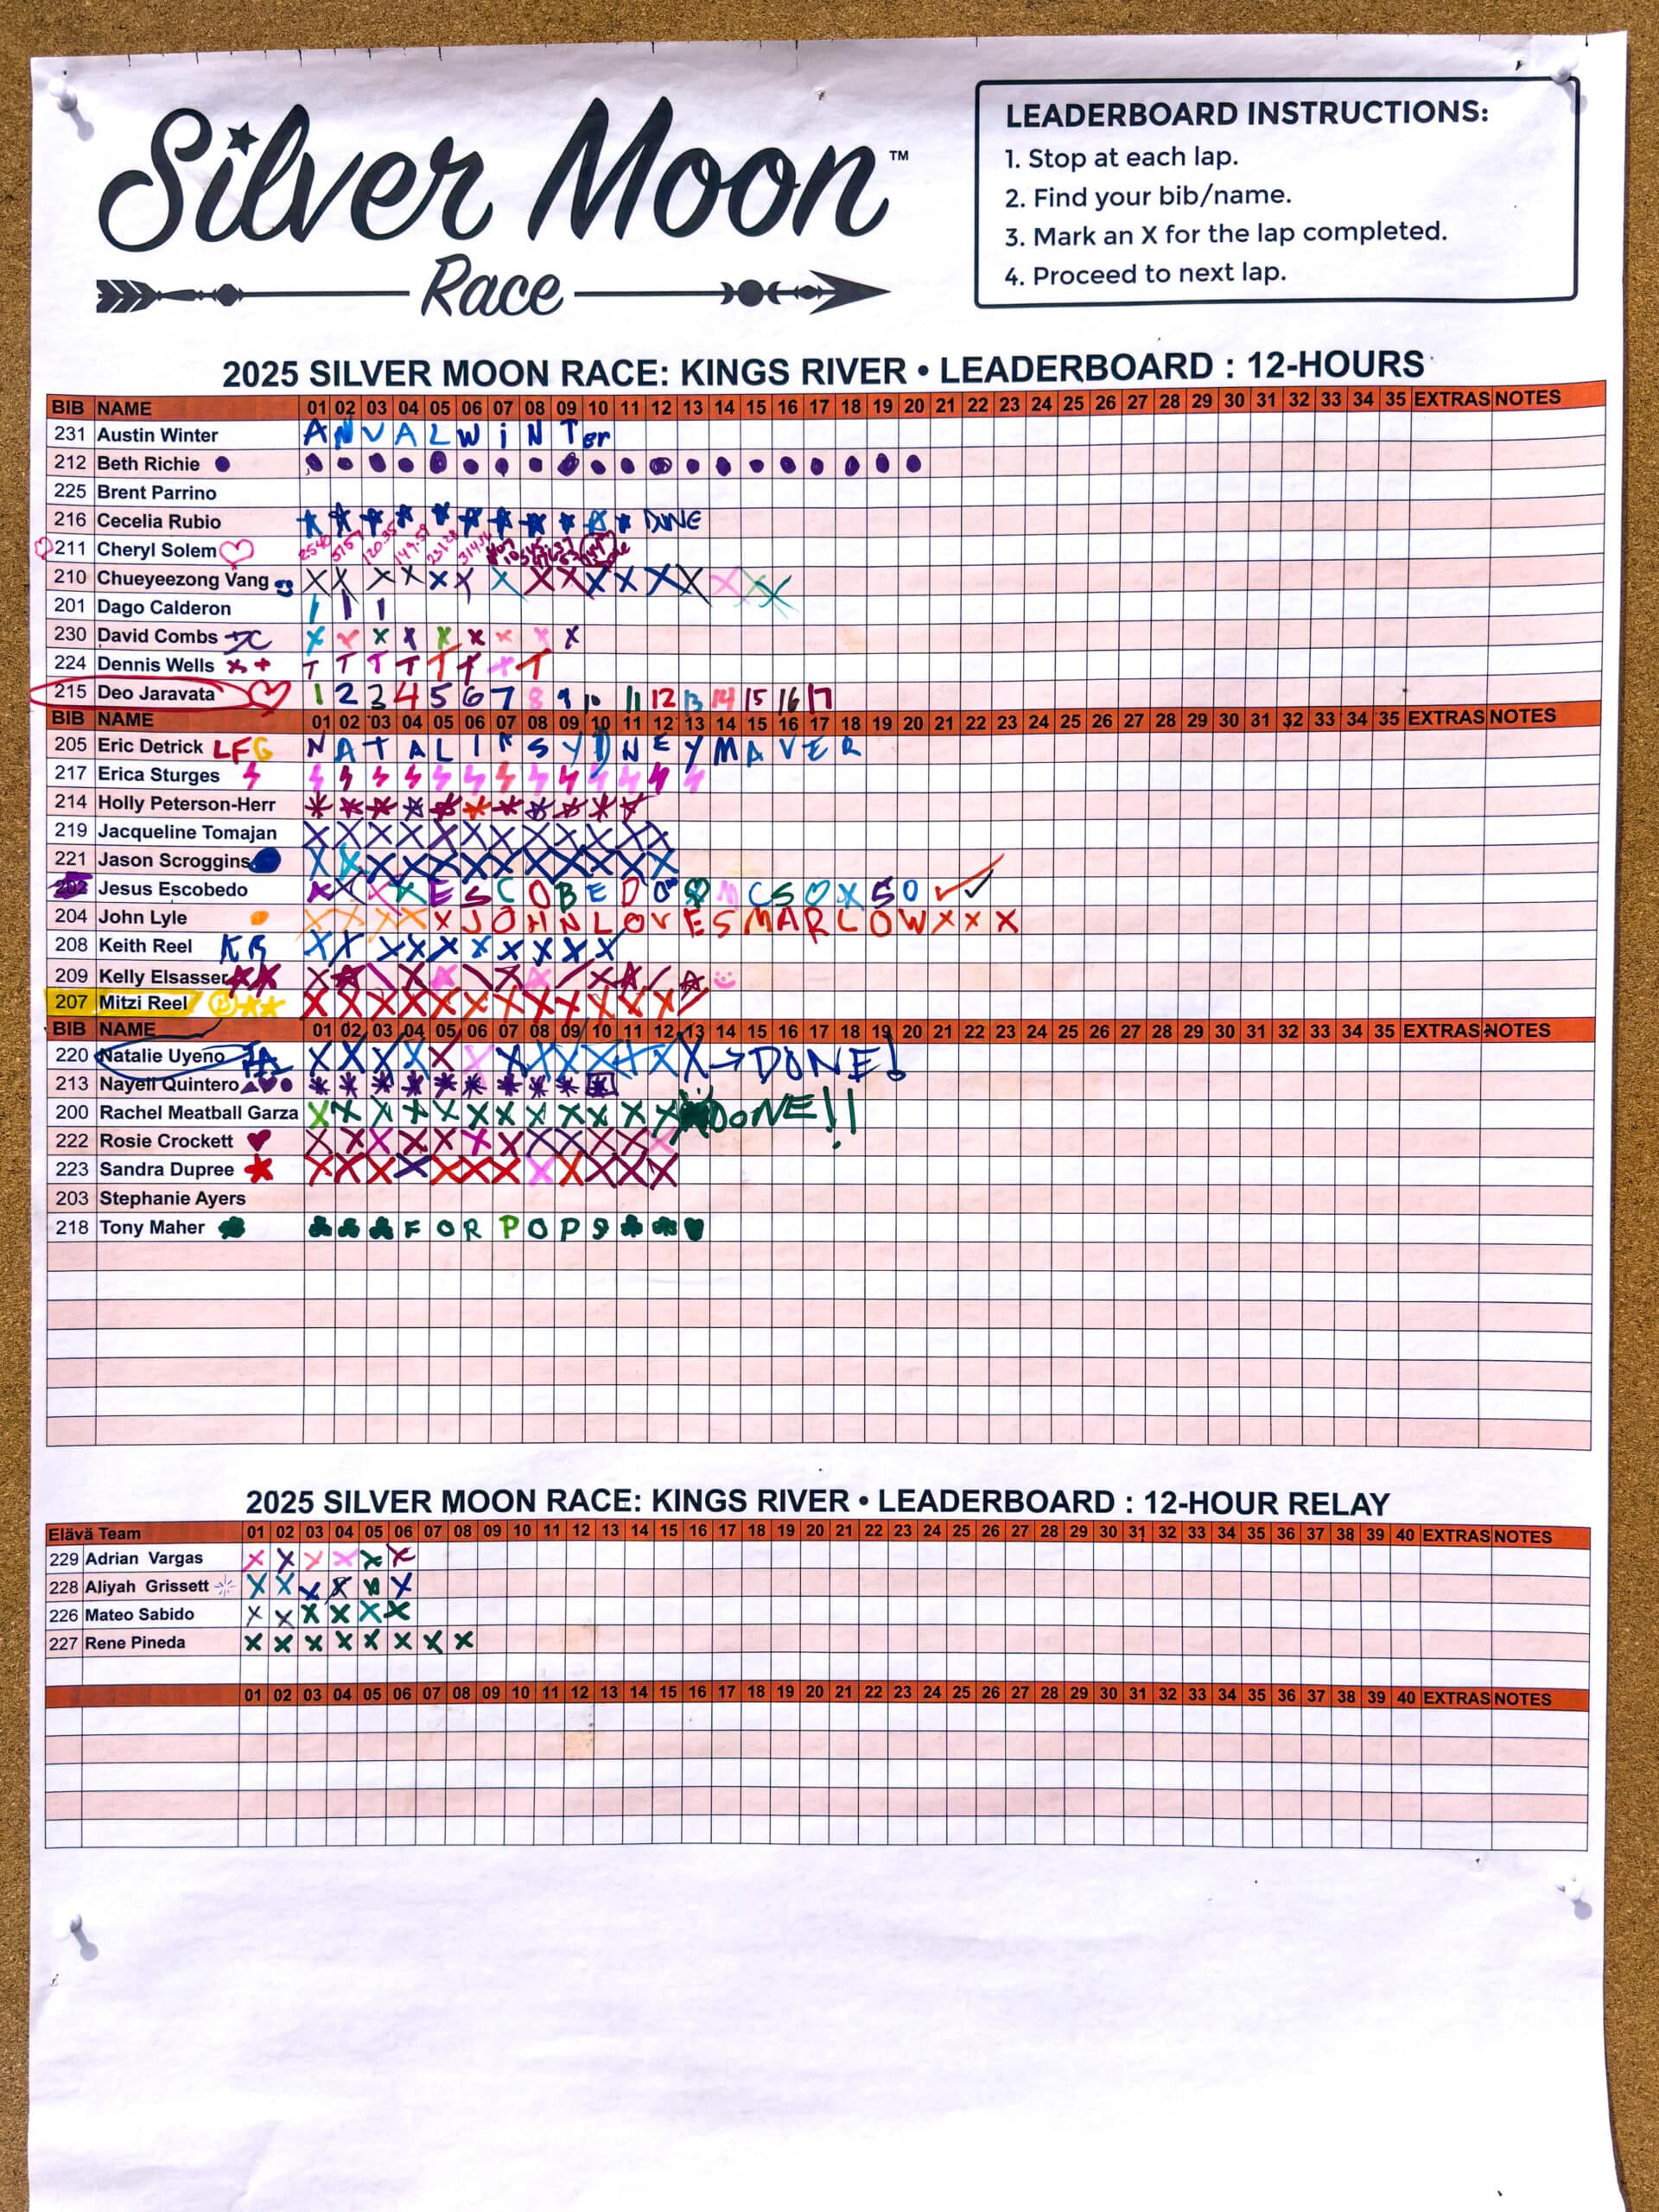 Silver Moon™
Race
LEADERBOARD INSTRUCTIONS:
1. Stop at each lap.
2. Find your bib/name.
3. Mark an X for the lap completed.
4. Proceed to next lap.
2025 SILVER MOON RACE: KINGS RIVER • LEADERBOARD : 12-HOURS
BIB NAME 01 02 03 04 05 06 07 08 09 10 11 12 13 14 15 16 17 18 19 20 21 22 23 24 25 26 27 28 29 30 31 32 33 34 35 EXTRAS NOTES
231 Austin Winter A N V A L W i N T er
212 Beth Richie
225 Brent Parrino
216 Cecelia Rubio DONE
211 Cheryl Solem
210 Chueyeezong Vang X X X X X X X X X X X X X X X X
201 Dago Calderon
230 David Combs X X X X X X X X X
224 Dennis Wells T T T T T T T T
215 Deo Jaravata 1 2 3 4 5 6 7 8 9 10 11 12 13 14 15 16 17
BIB NAME 01 02 03 04 05 06 07 08 09 10 11 12 13 14 15 16 17 18 19 20 21 22 23 24 25 26 27 28 29 30 31 32 33 34 35 EXTRAS NOTES
205 Eric Detrick LFG N A T A L I K S Y D N E Y M A V E R
217 Erica Sturges
214 Holly Peterson-Herr
219 Jacqueline Tomajan X X X X X X X X X X X X
221 Jason Scroggins X X X X X X X X X X X X
202 Jesus Escobedo X X X X E S C O B E D O M C S O X 5 0
204 John Lyle X X X X X J O H N L O V E S M A R L O W X X X
208 Keith Reel KR X X X X X X X X X X
209 Kelly Elsasser
207 Mitzi Reel X X X X X X X X X X X X
BIB NAME 01 02 03 04 05 06 07 08 09 10 11 12 13 14 15 16 17 18 19 20 21 22 23 24 25 26 27 28 29 30 31 32 33 34 35 EXTRAS NOTES
220 Natalie Uyeno X X X X X X X X X X X X X → DONE!
213 Nayeli Quintero
200 Rachel Meatball Garza X X X X X X X X X X X X DONE!!
222 Rosie Crockett X X X X X X X X X X X X
223 Sandra Dupree X X X X X X X X X X X X
203 Stephanie Ayers
218 Tony Maher F O R P O P S
2025 SILVER MOON RACE: KINGS RIVER • LEADERBOARD : 12-HOUR RELAY
Elävä Team 01 02 03 04 05 06 07 08 09 10 11 12 13 14 15 16 17 18 19 20 21 22 23 24 25 26 27 28 29 30 31 32 33 34 35 36 37 38 39 40 EXTRAS NOTES
229 Adrian Vargas X X X X X X
228 Aliyah Grissett X X X X X X
226 Mateo Sabido X X X X X X
227 Rene Pineda X X X X X X X X
01 02 03 04 05 06 07 08 09 10 11 12 13 14 15 16 17 18 19 20 21 22 23 24 25 26 27 28 29 30 31 32 33 34 35 36 37 38 39 40 EXTRAS NOTES